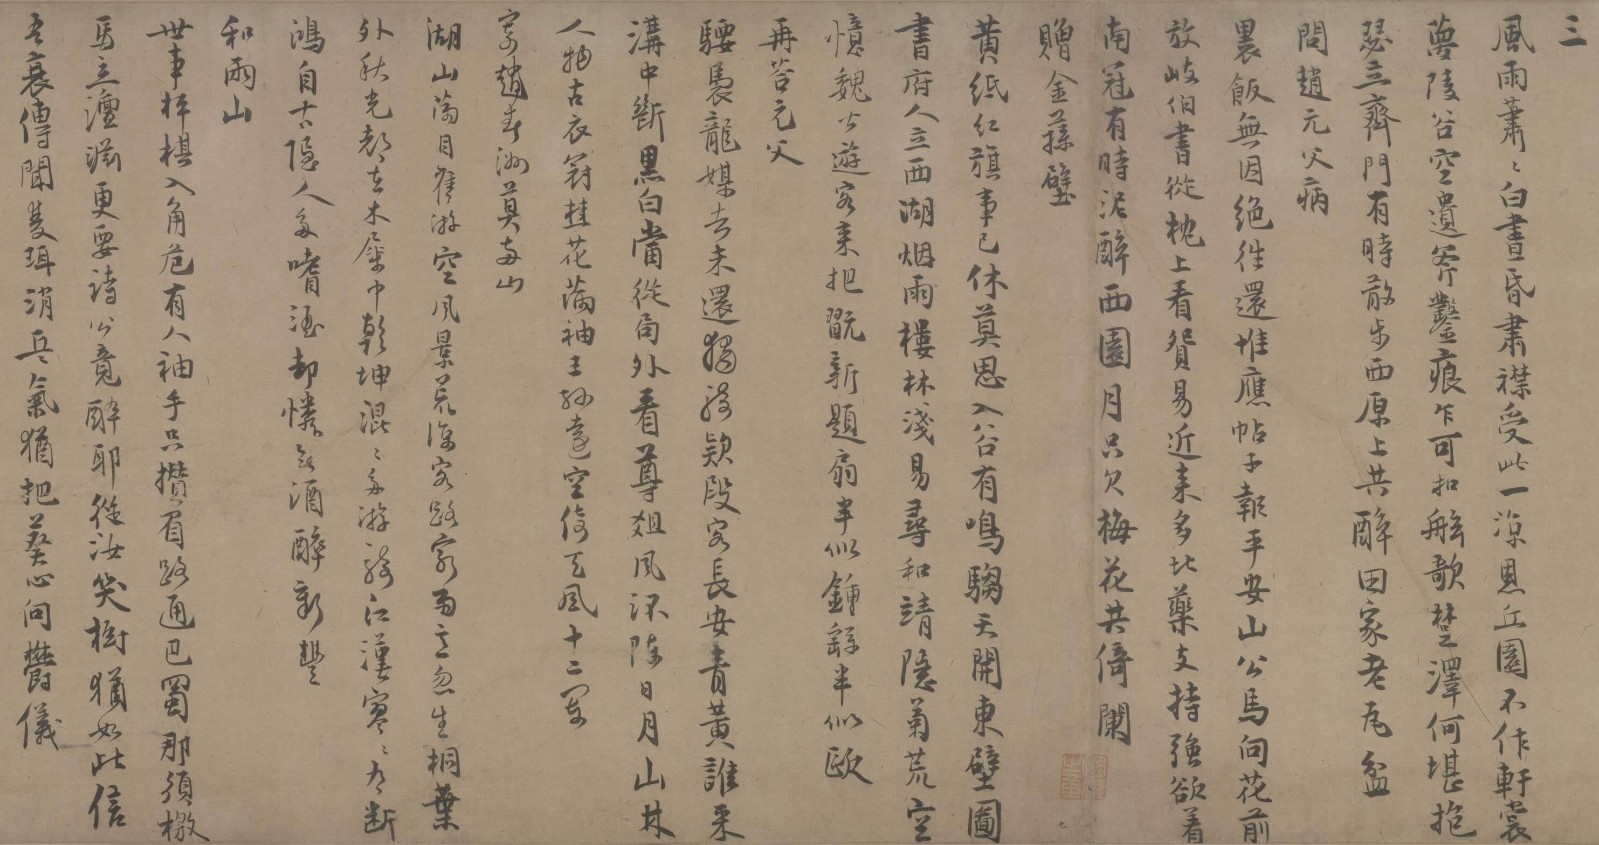 三
風雨蕭〻白晝昏肅襟受此一涼恩丘園不作軒裳
夢陵谷空遺斧鑿痕乍可扣舷歌楚澤何堪抱
瑟立齊門有時散步西原上共醉田家老瓦盆
問趙元父病
裹飯無因絕往還惟應帖子報平安山公馬向花前
放岐伯書從枕上看貧易近来多比藥支持強欲着
南冠有時泥醉西園月只欠梅花共倚闌
贈金蓀璧
黄紙紅旗事已休莫思入谷有鳴騶天開東壁圖
書府人立西湖烟雨樓林淺易尋和靖隱菊荒空
憶魏公遊客来把翫新題扇半似鍾繇半似歐
再荅元父
騕褭龍媒去未還獨騎款段客長安青黄誰采
溝中斷黒白當從局外看尊爼風流陈日月山林
人物古衣冠桂花滿袖王孫遠空倚天風十二闌
寄趙春洲莫南山
湖山滿目舊游空風景荒凉客路窮雨意忽生桐葉
外秋光都在木犀中乾坤混〻多游騎江漢寥〻有断
鴻自古隱人多嗜酒却憐無酒醉新豐
和雨山
世事枰棋入角危有人袖手只攢眉路通巴蜀那須檄
馬立澶淵更要詩公竟醉耶從汝笑樹猶如此信
吾衰傳聞雙珥消兵氣猶把葵心向鬱儀